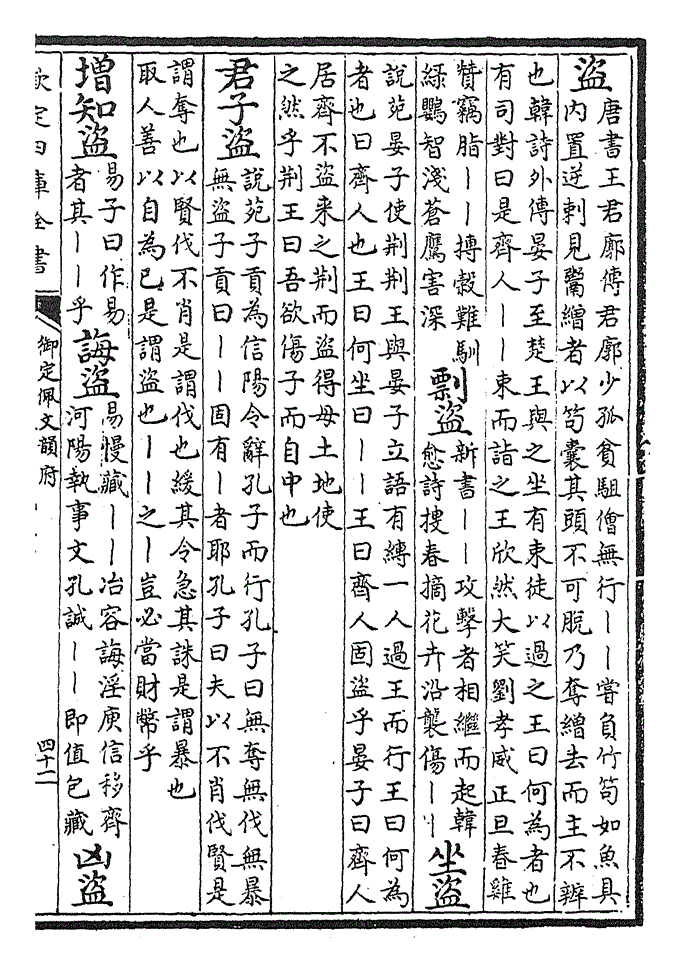 盜
唐書王君廓傳君廓少孤貧駔儈無行丨丨嘗負竹笱如魚具
内置逆刺見鬻繒者以笱囊其頭不可脱乃奪繒去而主不辨
也韓詩外傳晏子至楚王與之坐有束徒以過之王曰何為者也
有司對曰是齊人丨丨束而詣之王欣然大笑劉孝威正旦春雞
贊竊脂丨丨搏穀難馴
緑鸚智淺蒼鷹害深
剽盜
新書丨丨攻擊者相繼而起韓
愈詩捜春摘花卉沿襲傷丨丨
坐盜
說苑晏子使荆荆王與晏子立語有縛一人過王而行王曰何為
者也曰齊人也王曰何坐曰丨丨王曰齊人固盜乎晏子曰齊人
居齊不盜来之荆而盜得毋土地使
之然乎荆王曰吾欲傷子而自中也
君子盜
說苑子貢為信陽令辭孔子而行孔子曰無奪無伐無暴
無盜子貢曰丨丨固有丨者耶孔子曰夫以不肖伐賢是
謂奪也以賢伐不肖是謂伐也緩其令急其誅是謂暴也
取人善以自為已是謂盜也丨丨之丨豈必當財幣乎
增知盜
易子曰作易
者其丨丨乎
誨盜
易慢藏丨丨冶容誨淫庾信移齊
河陽執事文孔誠丨丨即值包藏
凶盜
欽定四庫全書
御定佩文韻府
四十二